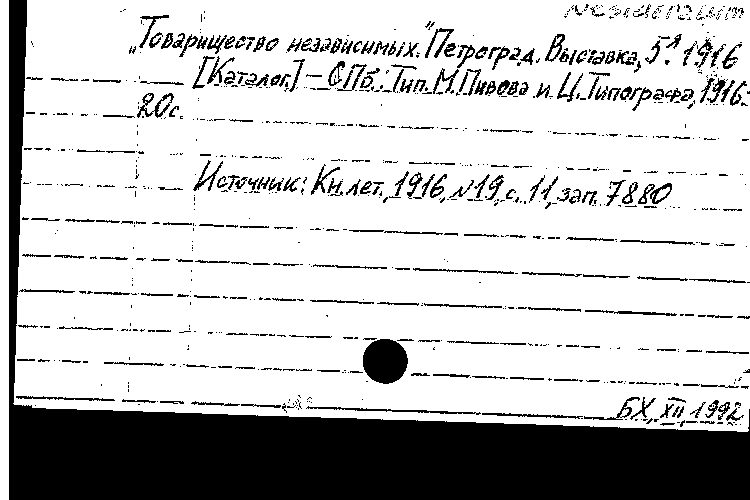 Desideratum
„Товарищество независимых." Петроград. Выставка, 5ª. 1916
[Каталог.] – СПб.: Тип. М. Пивова и Ц. Типографа, 1916.-
20 с.
Источник: Кн. лет., 1916, №19, с. 11, зап. 7880
БХ, XII, 1992